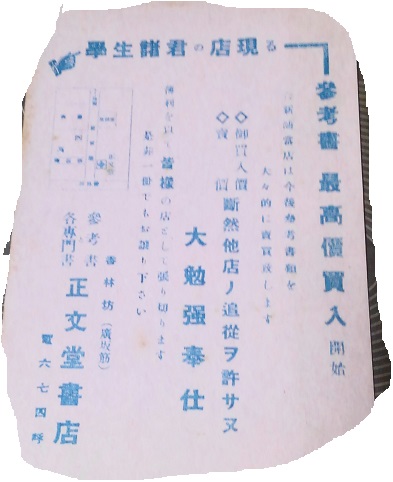 學生諸君の店現る
參考書 最高價買入 開始
今般當店は今後參考書類を
大々的に賣買致します
◇御買入價
◇賣價
斷然他店ノ追從ヲ許サヌ
大勉强奉仕
薄利を以て皆樣の店として張り切ります
是非一冊でもお讓り下さい
參考書
各專門書
香林坊（廣坂筋）
正文堂書店
電六七四呼